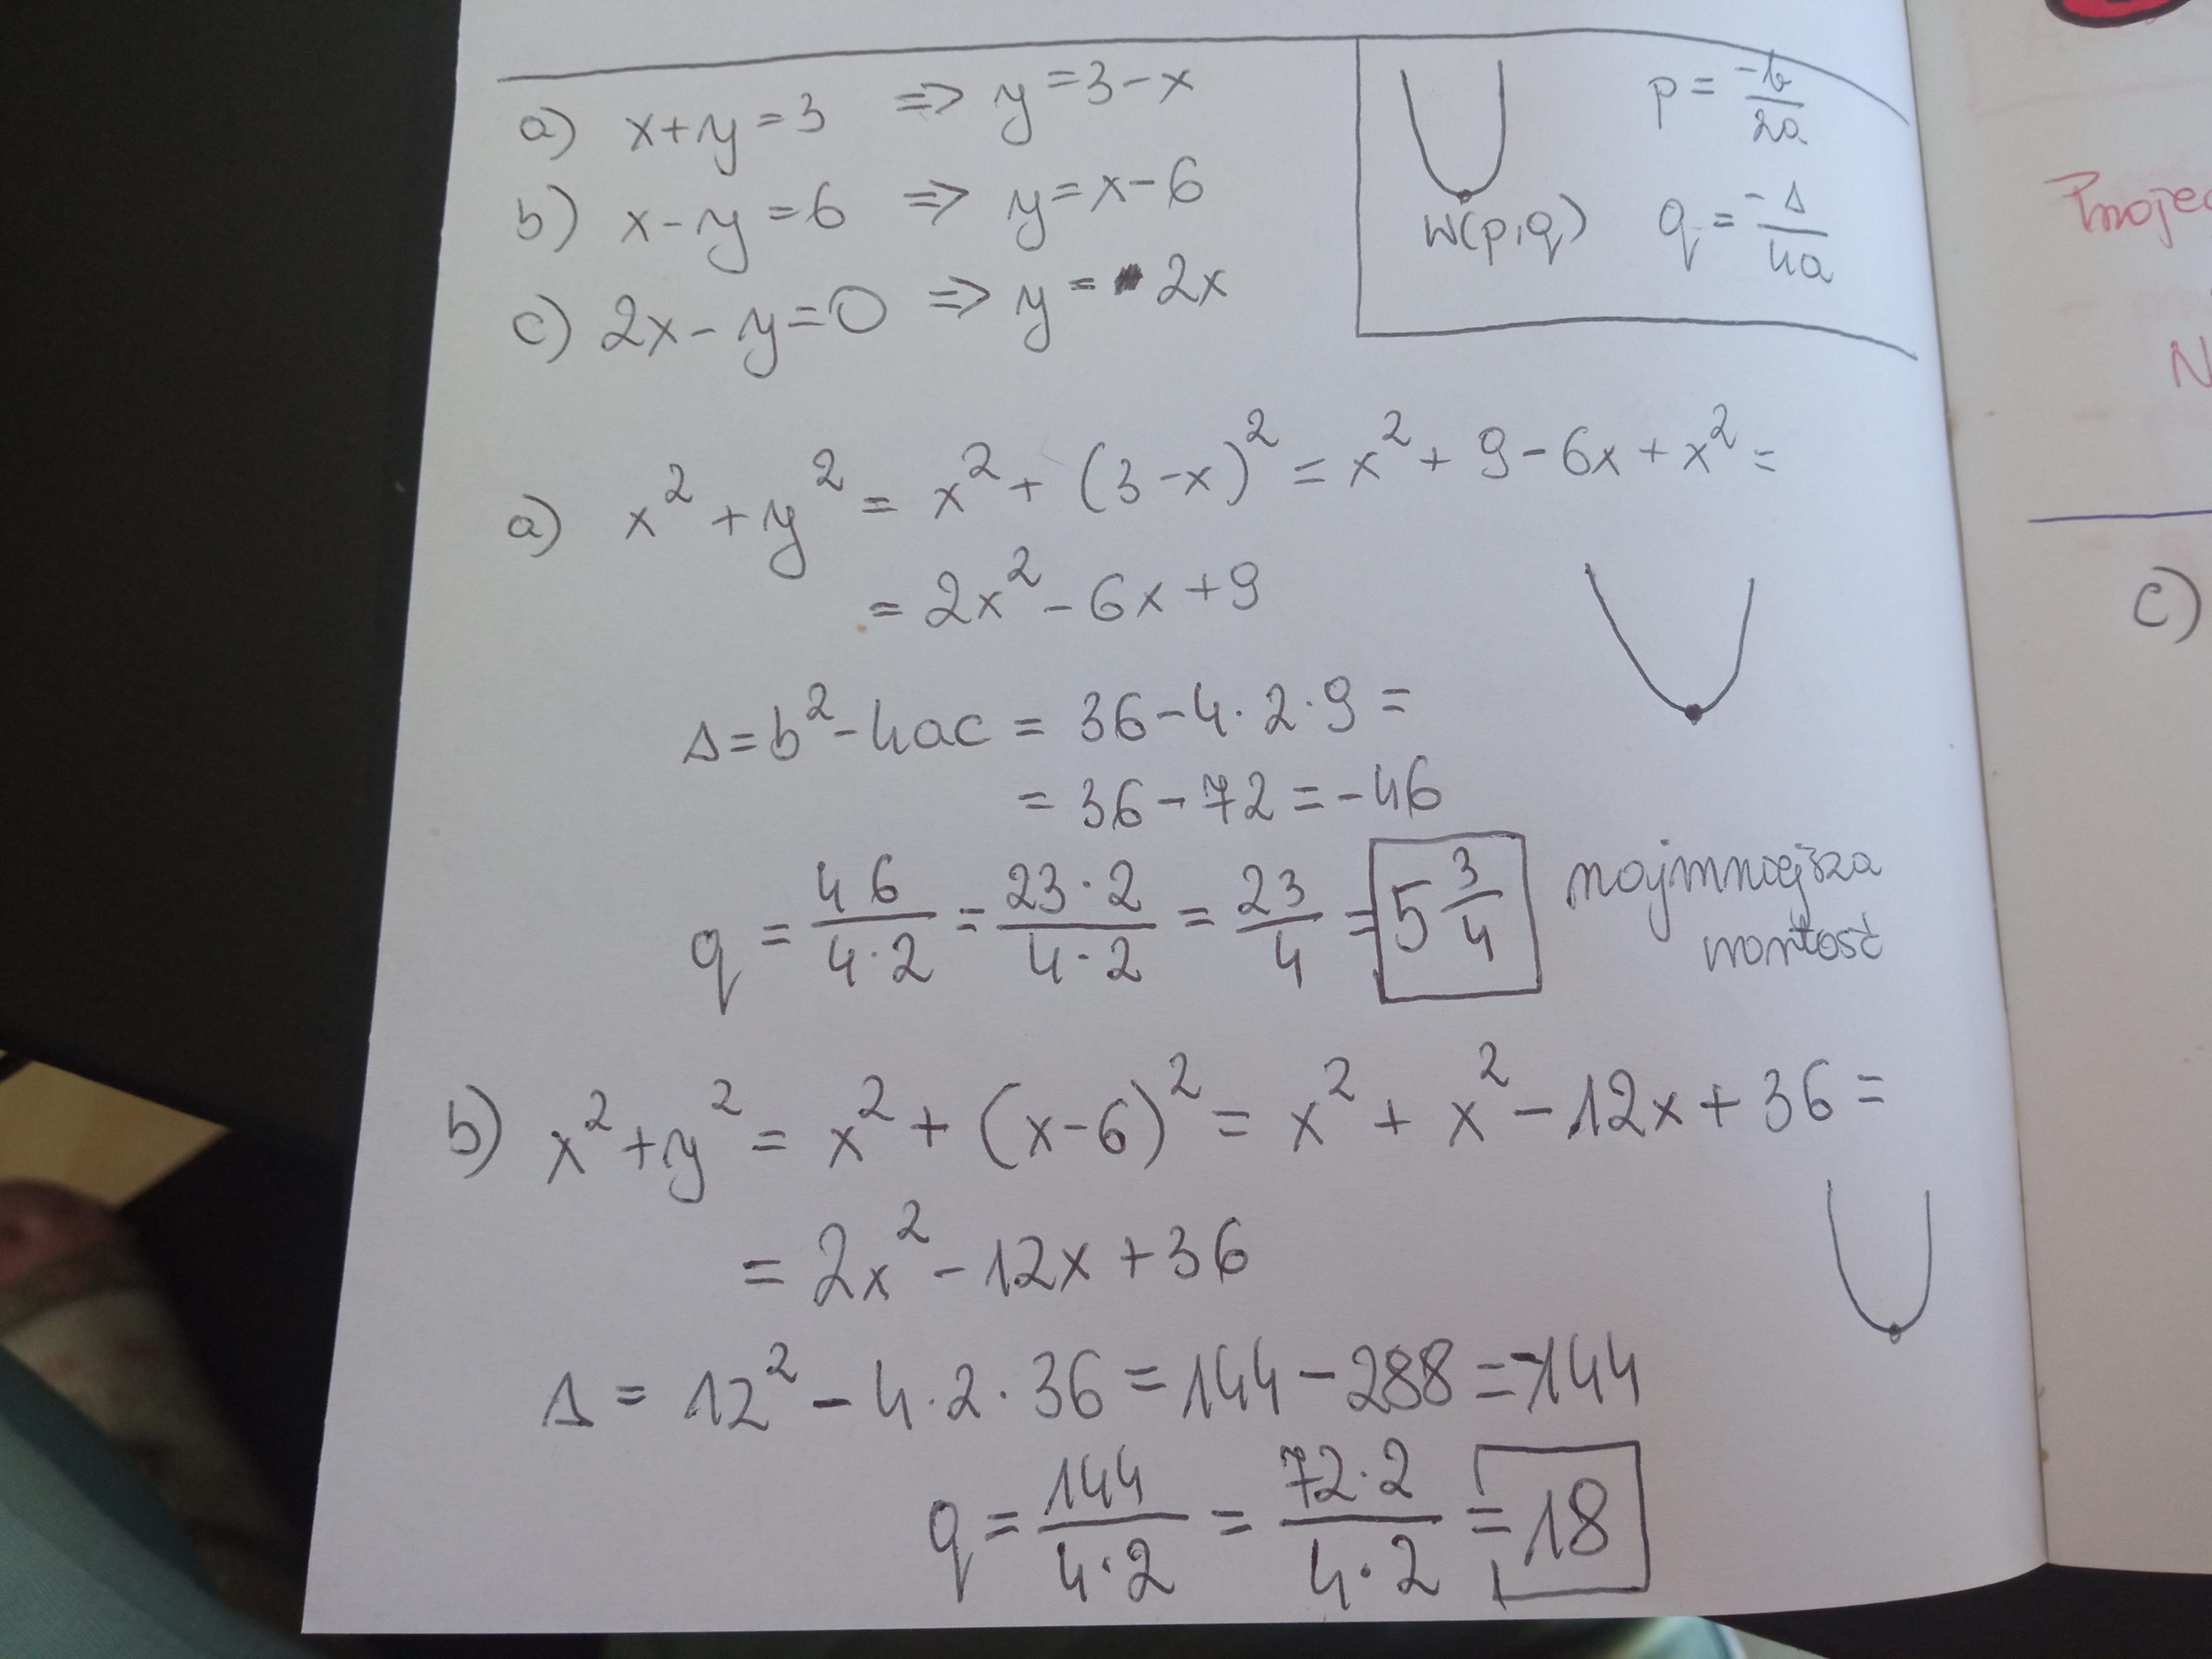 a) x+y=3 => y=3-x
b) x-y=6 => y=x-6
c) 2x-y=0 => y= 2x
W(p,q)
p = -b/2a
q = -Δ/4a
a) x²+y² = x²+(3-x)² = x²+9-6x+x² =
= 2x²-6x+9
Δ=b²-4ac = 36-4·2·9 =
= 36-72=-46
q = 46/4·2 = 23·2/4·2 = 23/4 = 5 3/4 najmniejsza
wartość
b) x²+y² = x²+(x-6)² = x²+x²-12x+36 =
= 2x²-12x+36
Δ = 12²-4·2·36 = 144-288 = -144
q = 144/4·2 = 72·2/4·2 = 18
Projec
N
c)